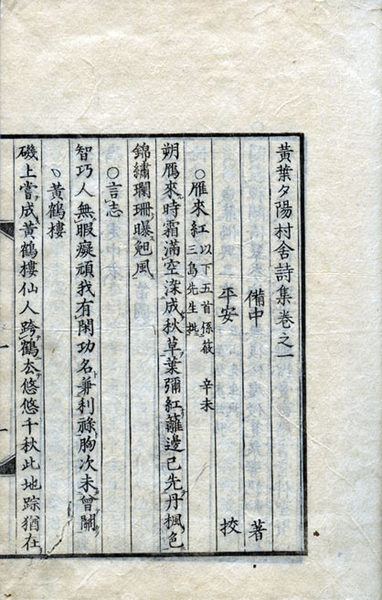 黃葉夕陽村舍詩集卷之一
備中　著
平安　挍
○雁來紅 以下五首係筱三島先生挑 辛未
朔鴈來時霜滿空染成秋草葉彌紅籬邊已先丹楓色
錦繡斕珊曝兜風
○言志
智巧人無暇癡頑我有閑功名兼利祿胸次未曾關
黃鶴樓
磯上嘗成黃鶴樓仙人跨鶴去悠悠千秋此地踪猶在